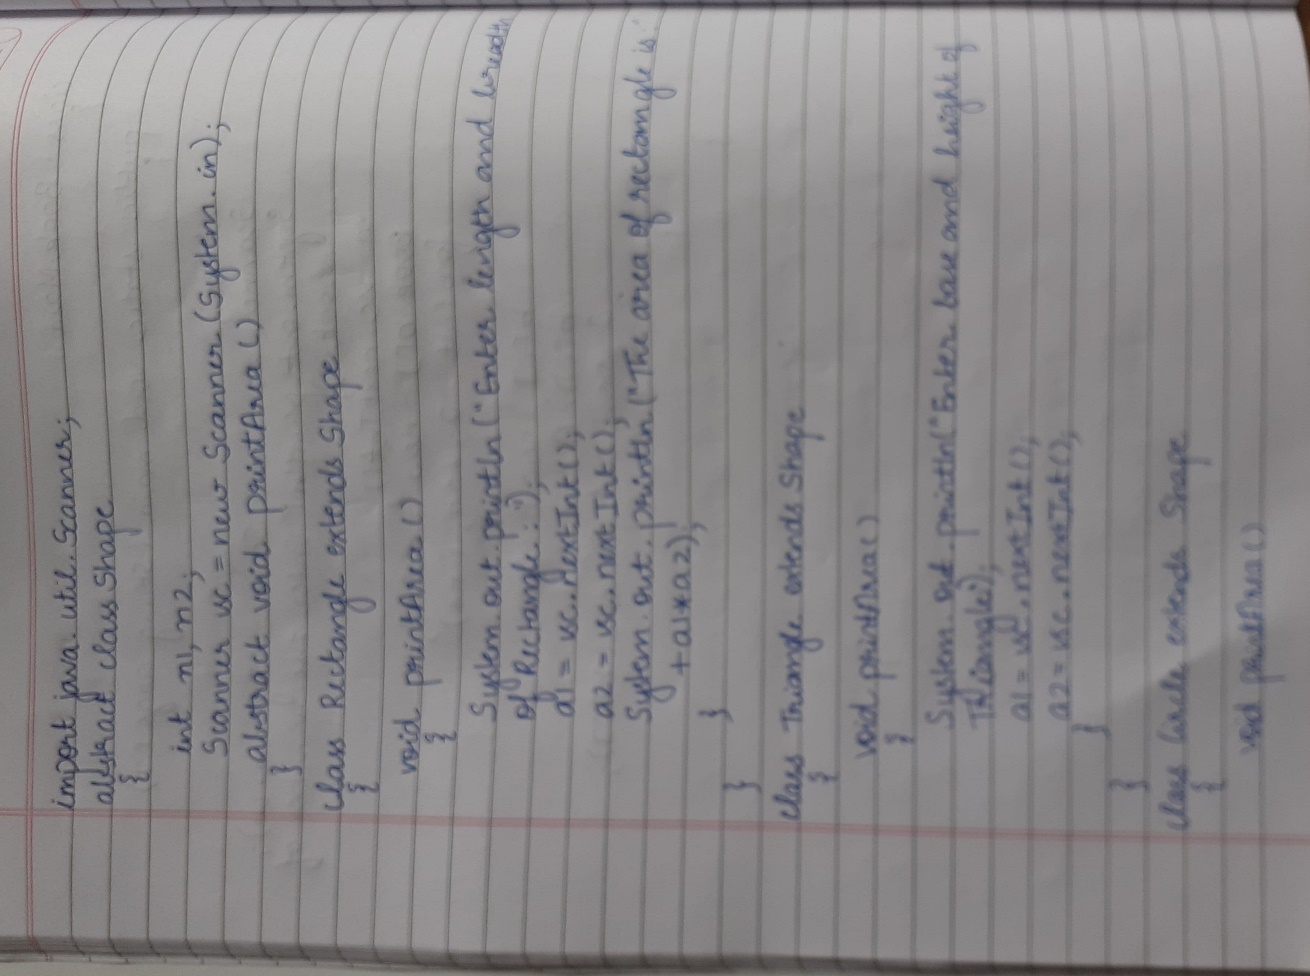 import java.util.Scanner;
abstract class Shape
{
int n1, n2;
Scanner sc = new Scanner (System.in);
abstract void printArea ()
}
class Rectangle extends Shape
{
void printArea ()
{
System.out.println ("Enter length and breadth
of Rectangle : ");
a1 = sc.nextInt ();
a2 = sc.nextInt ();
System.out.println ("The area of rectangle is:"
+ a1*a2);
}
}
class Triangle extends Shape
{
void printArea ()
{
System.out.println("Enter base and height of
Triangle:");
a1 = sc.nextInt ();
a2 = sc.nextInt ();
}
}
class Circle extends Shape
{
void printArea ()